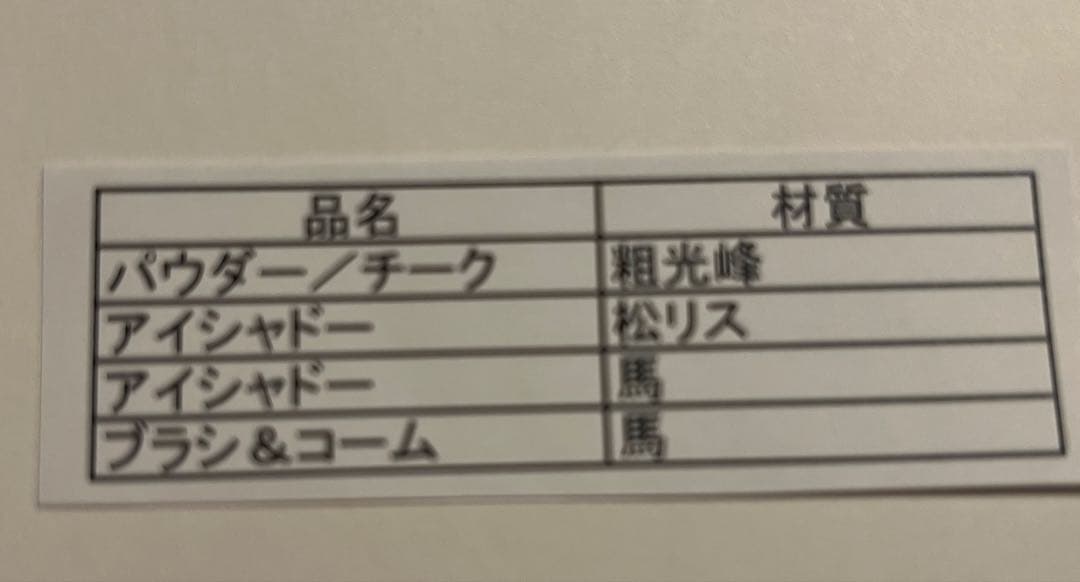 品名 材質
パウダー／チーク 粗光峰
アイシャドー 松リス
アイシャドー 馬
ブラシ＆コーム 馬